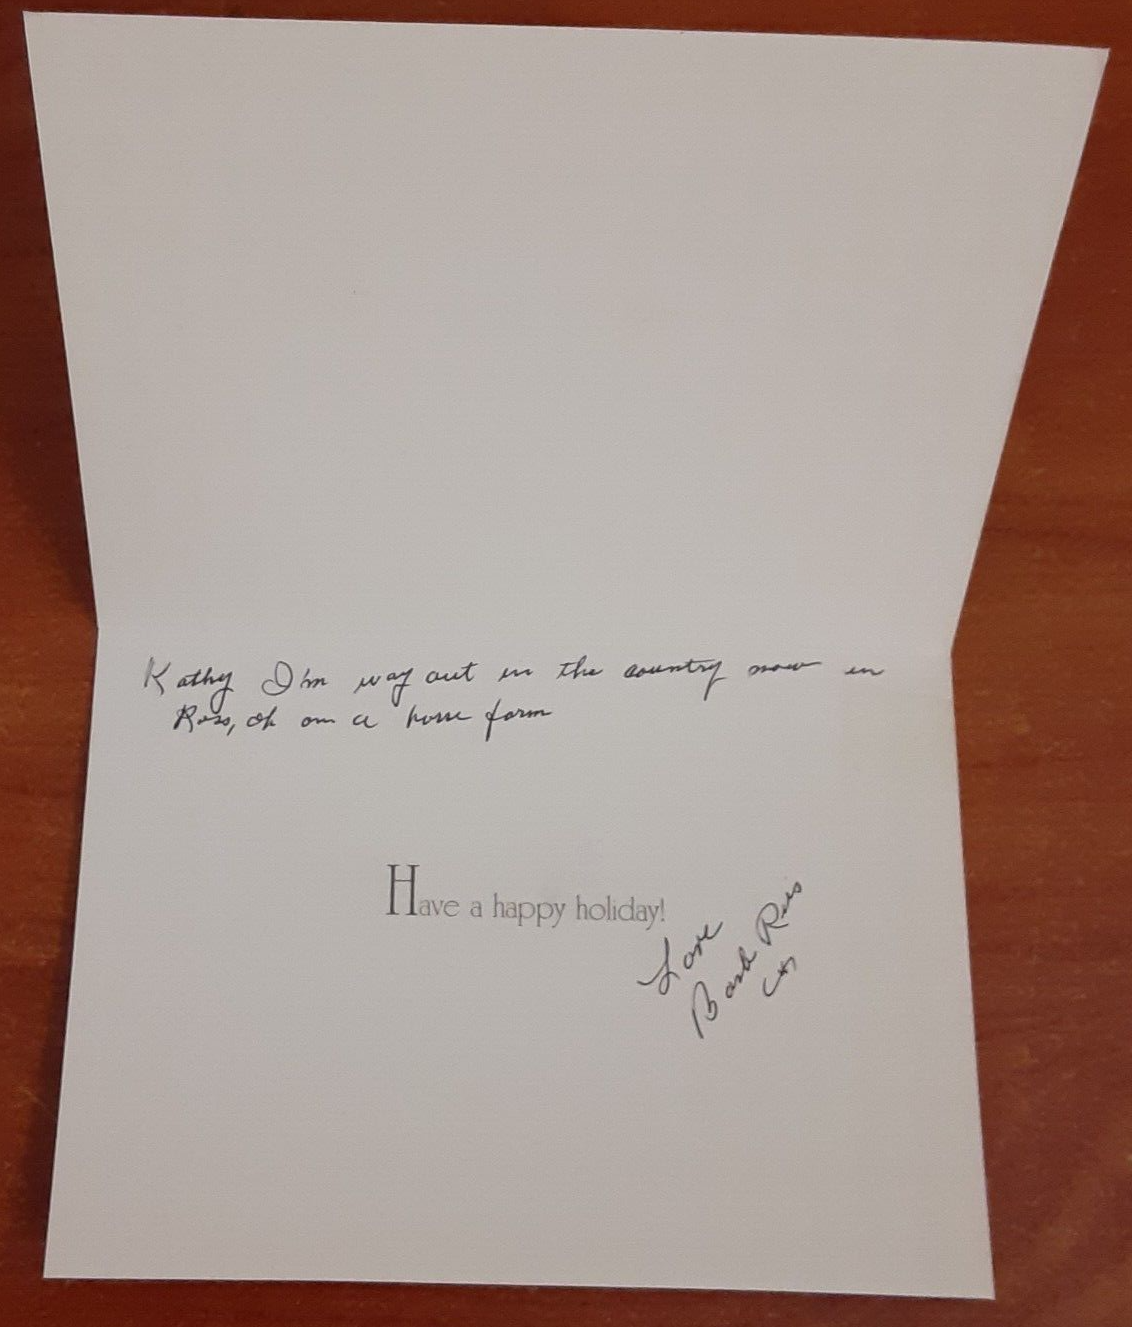 Kathy I'm way out in the country now in
Ross, Oh on a horse farm
Have a happy holiday!
Love
Barb Ross